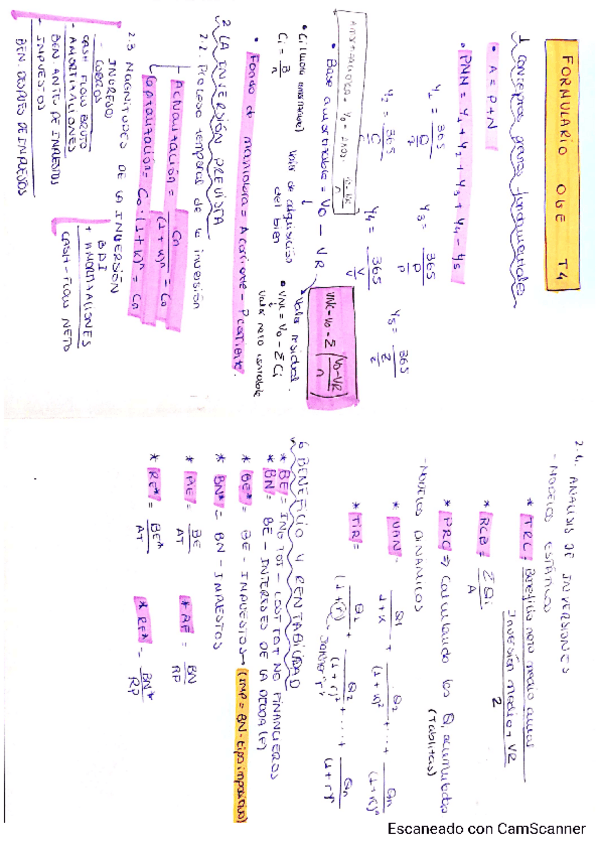 FORMULARIO OGE T4
1 conceptos previos fundamentales
• A = P + N
• PMM = y1 + y2 + y3 + y4 - y5
y1 = 365 / y3 = 365 / P/p y5 = 365 /
y2 = 365 / y4 = 365 / V/v
• Base amortizable = V0 - VR
Valor de adquisición del bien
Valor residual
VNC = V0 - Σ (V0-VR / n)
• Ci (cuota amortización)
Ci = B/n
• VNC = V0 - Σ Ci
valor neto contable
• Fondo de maniobra = A corriente - P corriente.
2 LA INVERSIÓN PREVISTA
2.2. Proceso temporal de la inversión
Actualización = Cn / (1+k)^n = C0
Capitalización = C0 · (1+k)^n = Cn
2.3 MAGNITUDES DE LA INVERSIÓN
INGRESOS
CASH FLOW BRUTO
- AMORTIZACIONES
BEN ANTES DE IMPUESTOS
- IMPUESTOS
BEN DESPUES DE IMPUESTOS
BDI
+ AMORTIZACIONES
CASH-FLOW NETO
2.4. ANÁLISIS DE INVERSIONES
- MODELOS ESTÁTICOS
* TRC: Beneficio neto medio anual / Inversión media + VR / 2
* RCB = ΣQi / A
* PRC => Calculando los Q acumulados (Tablitas)
- MODELOS DINAMICOS
* VAN = Q1 / 1+k + Q2 / (1+k)² + ... + Qn / (1+k)^n
* TIR = Q1 / (1+r) + Q2 / (1+r)² + ... + Qn / (1+r)^n
6 BENEFICIO Y RENTABILIDAD
* BE = ING TOT - COST TOT NO FINANCIEROS
* BN = BE - INTERESES DE LA DEUDA (F)
* BE* = BE - IMPUESTOS → (IMP = BN · tipo impositivo)
* BN* = BN - IMPUESTOS
* RE = BE / AT * RF = BN / RP
* RE* = BE* / AT * RF* = BN* / RP
Escaneado con CamScanner